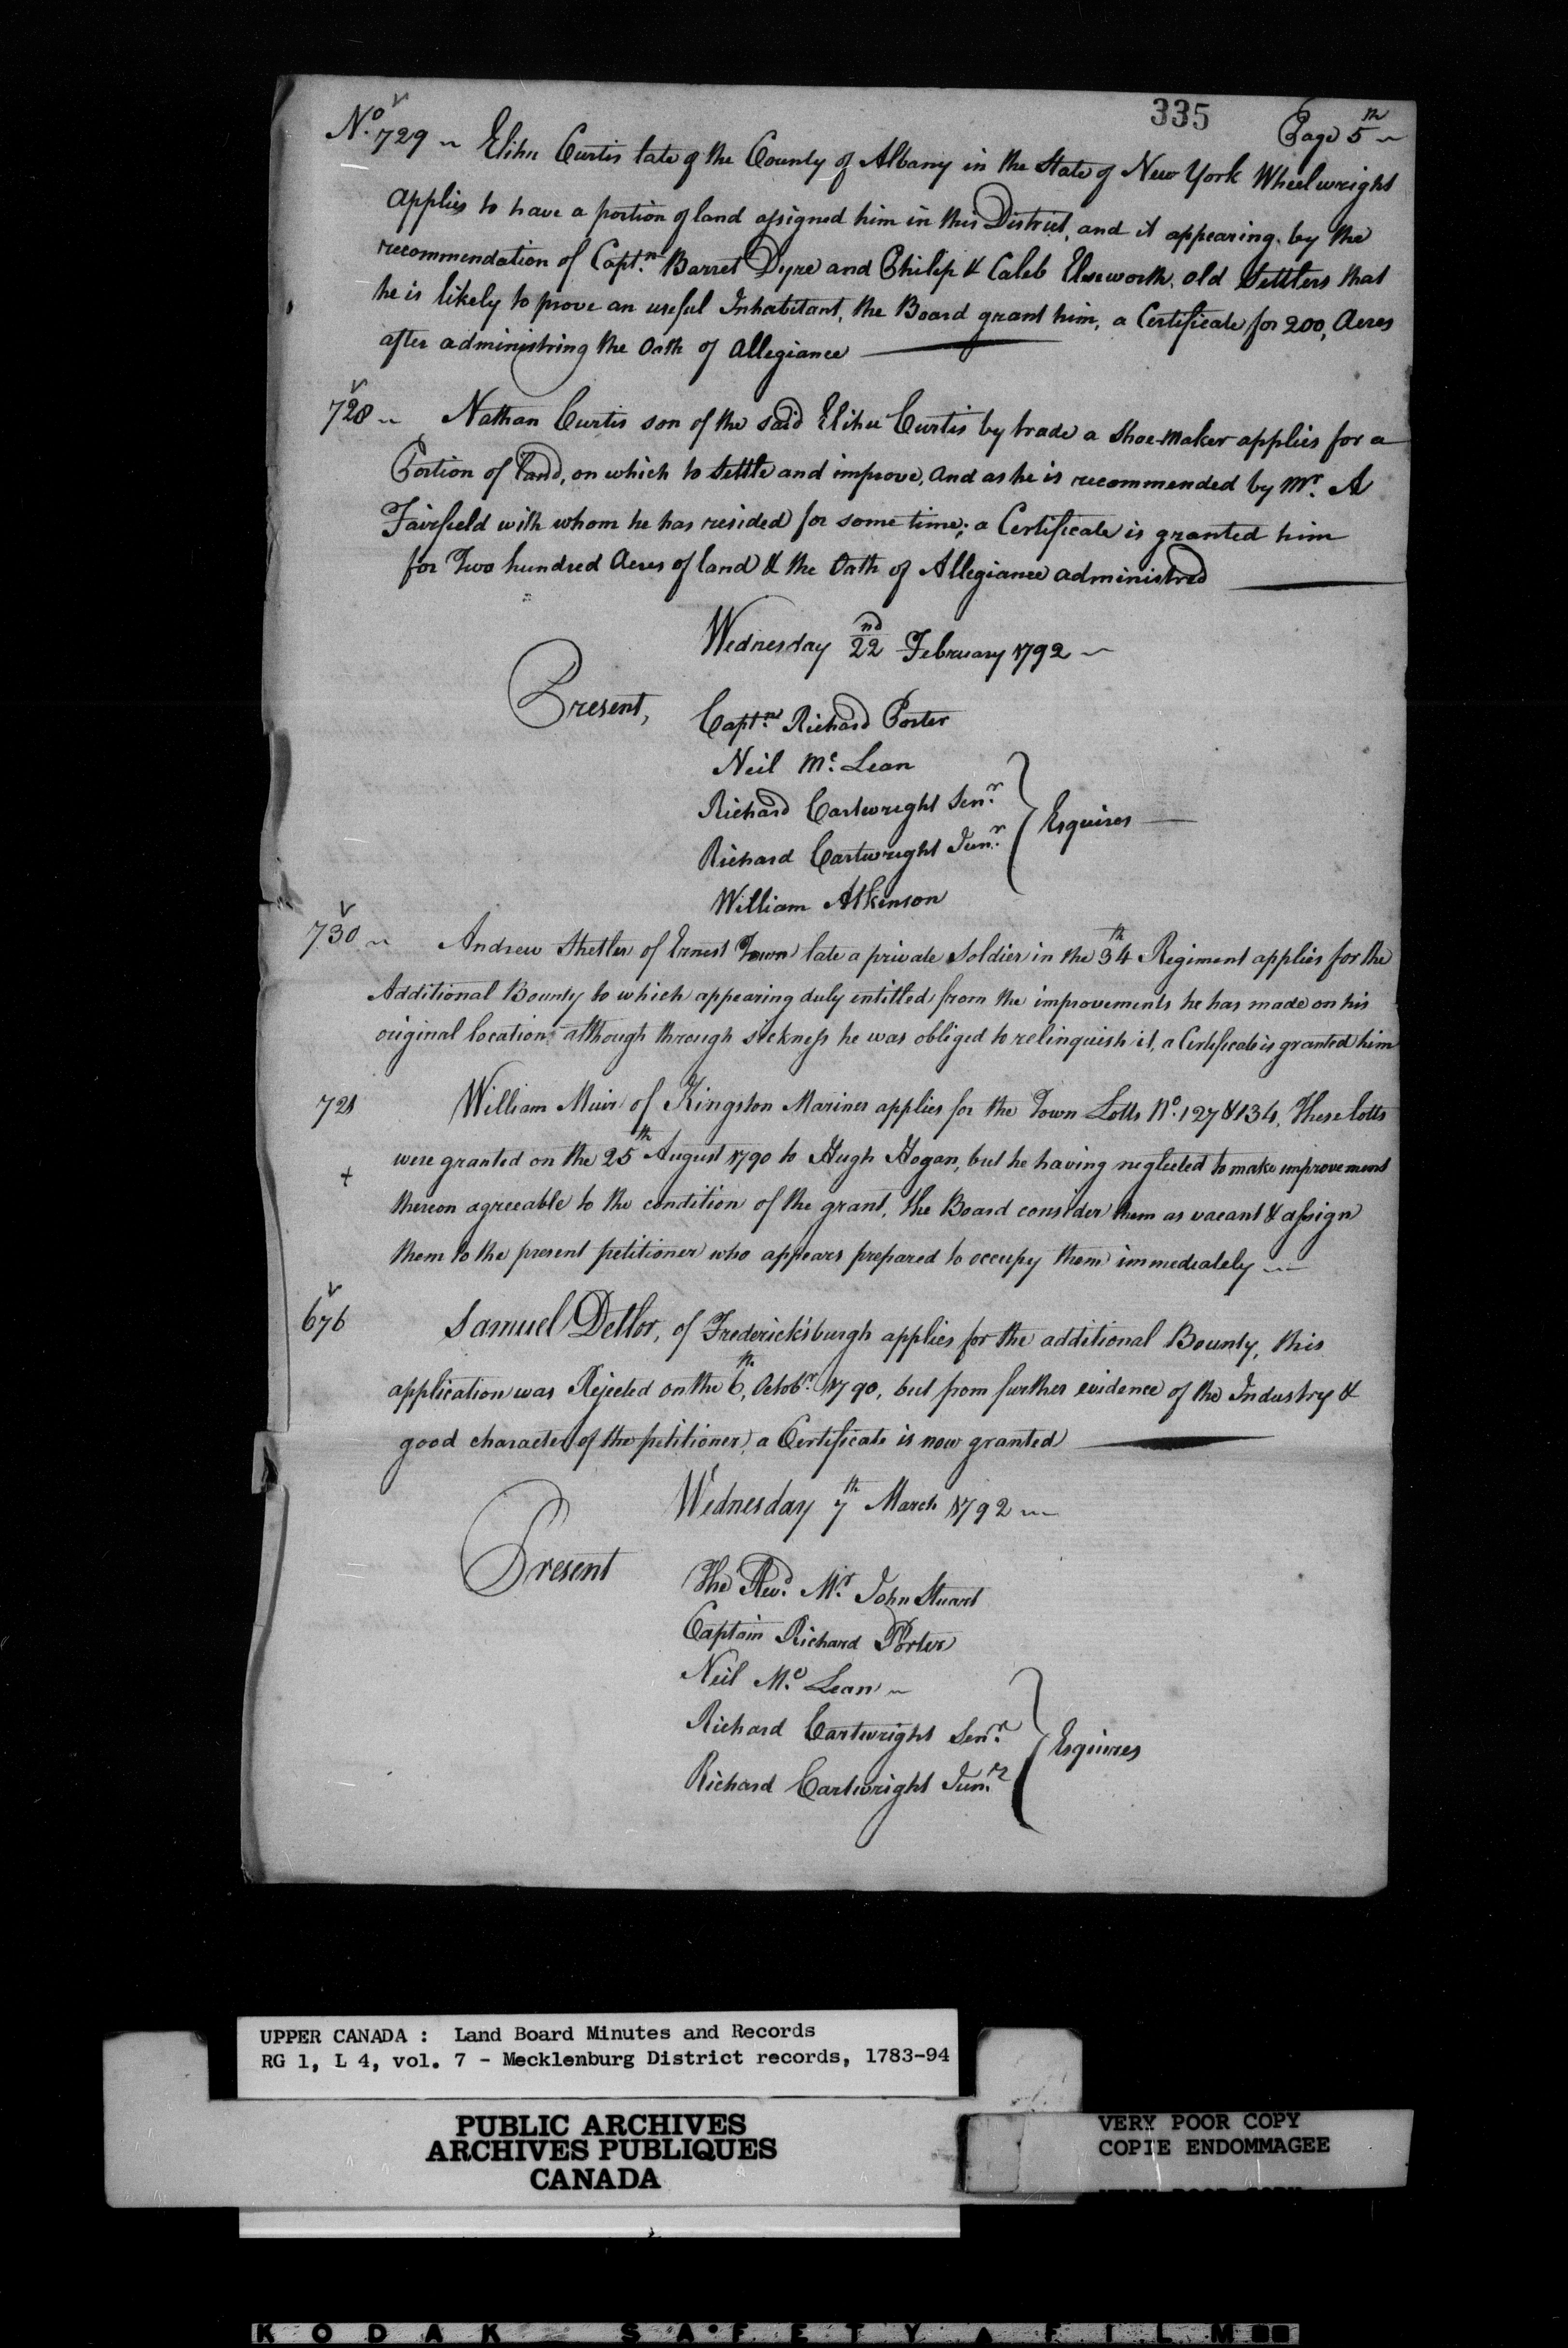 335
Page 5th
No. 729 Elihu Curtis late of the County of Albany in the State of New York Wheelwright
applies to have a portion of land assigned him in this District, and it appearing by the
recommendation of Captn. Barret Dyre and Philip & Caleb Elseworth, old Settlers that
he is likely to prove an useful Inhabitant, the Board grant him, a Certificate for 200, Acres
after administring the Oath of Allegiance
728 Nathan Curtis son of the said Elihu Curtis by trade a Shoe-maker applies for a
Portion of land, on which to settle and improve, and as he is recommended by Mr. A
Fairfield with whom he has resided for some time; a Certificate is granted him
for Two hundred Acres of land & the Oath of Allegiance administred
Wednesday 22nd February 1792
Present, Captn. Richard Porter
Neil Mc. Lean
Richard Cartwright Senr.
Richard Cartwright Junr.
Esquires
William Atkinson
730 Andrew Shetler of Ernest Town late a private Soldier in the 34th Regiment applies for the
Additional Bounty to which appearing duly entitled from the improvements he has made on his
original location, although through sickness he was obliged to relinquish it, a Certificate is granted him
721 William Muir of Kingston Mariner applies for the Town Lotts No. 127 & 134, These lotts
+ were granted on the 25th August 1790 to Hugh Hogan, but he having neglected to make improvement
thereon agreeable to the condition of the grant, the Board consider them as vacant & assign
them to the present petitioner who appears prepared to occupy them immediately
676 Samuel Detlor, of Fredericksburgh applies for the additional Bounty, this
application was Rejected on the 6th, Octobr. 1790, but from further evidence of the Industry &
good character of the petitioner, a Certificate is now granted
Wednesday 7th March 1792
Present The Revd. Mr. John Stuart
Captain Richard Porter
Neil Mc. Lean
Richard Cartwright Senr.
Esquires
Richard Cartwright Junr.
UPPER CANADA : Land Board Minutes and Records
RG 1, L 4, vol. 7 - Mecklenburg District records, 1783-94
PUBLIC ARCHIVES
ARCHIVES PUBLIQUES
CANADA
VERY POOR COPY
COPIE ENDOMMAGEE
KODAK SAFETY FILM